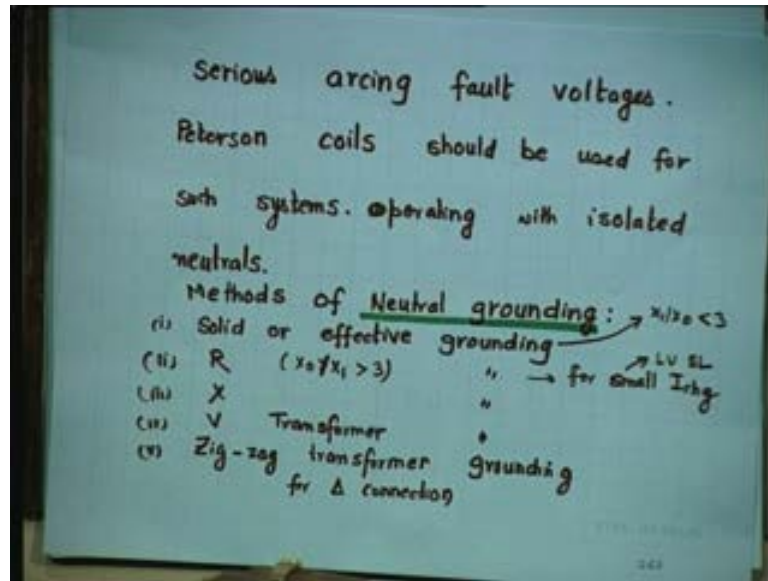 Serious arcing fault voltages.
Peterson coils should be used for
such systems. operating with isolated
neutrals.
Methods of Neutral grounding:
(i) Solid or effective grounding → x₁/x₀ < 3
(ii) R (x₀/x₁ > 3) " → for small Ichg LV SL
(iii) X "
(iv) V Transformer "
(v) Zig-zag transformer grounding
for Δ connection